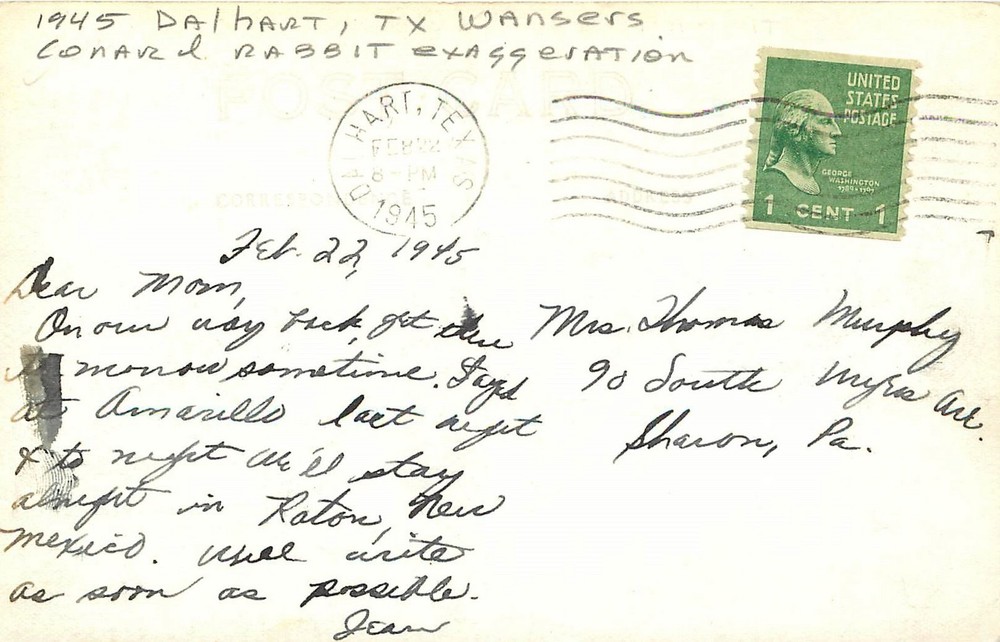 1945 Dalhart, TX Wansers
Conard RABBIT exaggeration
POST CARD
DALHART, TEXAS
FEB 22
8 - PM
1945
UNITED
STATES
POSTAGE
GEORGE
WASHINGTON
1789-1797
1 CENT 1
CORRESPONDENCE
ADDRESS
Feb. 22, 1945
Dear Mom,
On our way back, get there
morrow sometime. Stayed
at Amarillo last night
& to night we'll stay
alnight in Raton, New
Mexico. Will write
as soon as possible.
Jean
Mrs. Thomas Murphy
90 South Myers Ave.
Sharon, Pa.